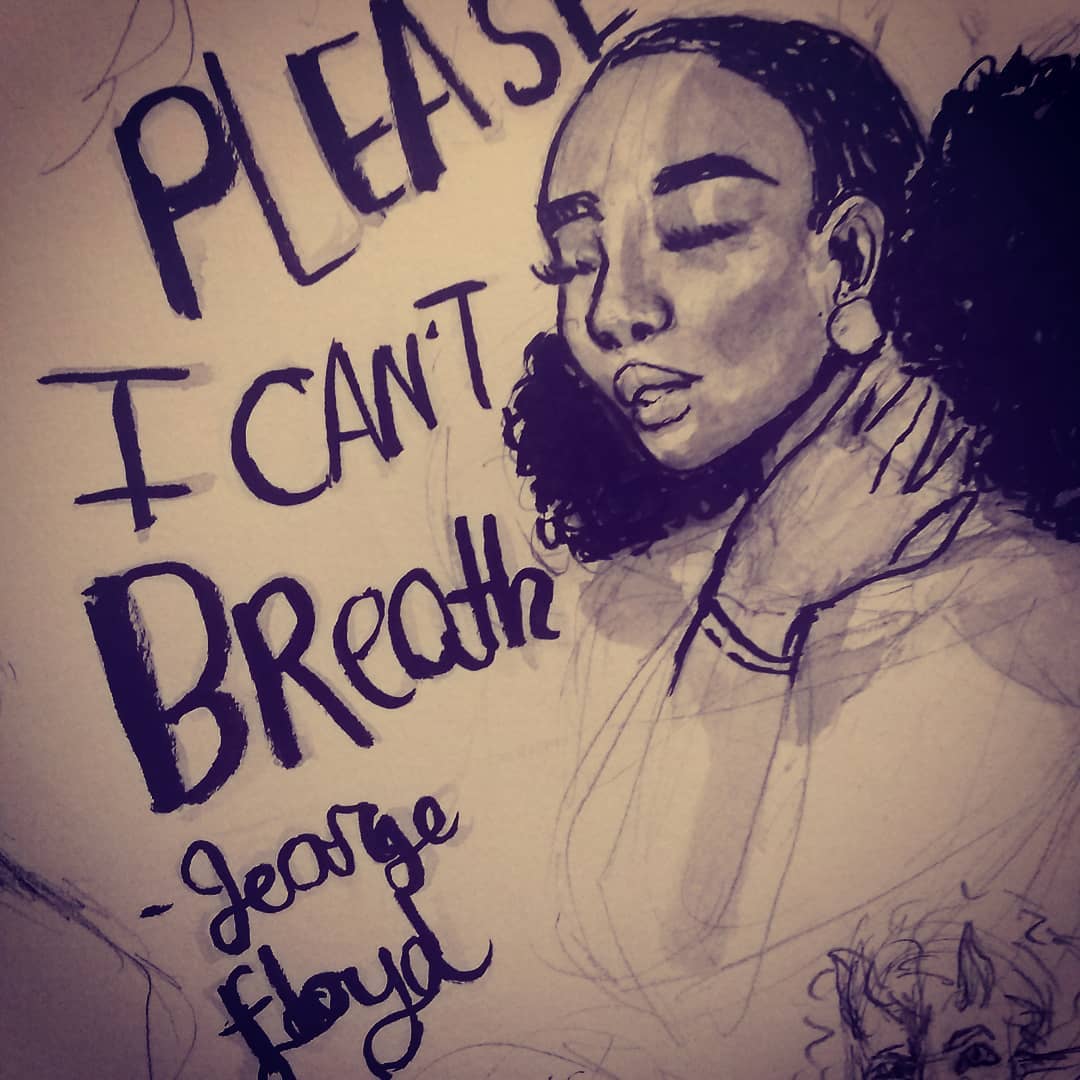 PLEASE
I CAN'T
BReath
- George
Floyd